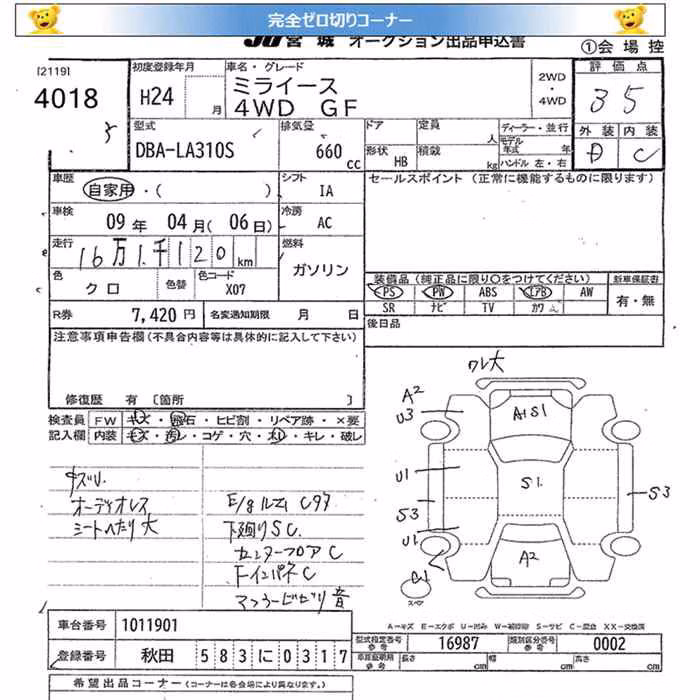 完全ゼロ切りコーナー
JU宮城 オークション出品申込書
①会場控
[2119]
4018
初度登録年月
H24 月
車名・グレード
ミライース
4WD GF
2WD
・
4WD
評価点
3.5
外装 内装
D C
型式
DBA-LA310S
排気量
660 cc
ドア
定員 人
形状 HB
積載 kg
ディーラー・並行
モデル年式 年
ハンドル 左・右
車歴
自家用・( )
シフト IA
セールスポイント (正常に機能するものに限ります)
車検
09年 04月( 06日)
冷房 AC
走行
16万1千120km
燃料
ガソリン
色
クロ
色替
色コード
X07
装備品(純正品に限り○をつけてください)
PS PW ABS エアB AW
SR ナビ TV カワ
新車保証書
有・無
R券 7,420円
名変通知期限 月 日
後日品
注意事項申告欄(不具合内容等は具体的に記入して下さい)
修復歴 有〔箇所 〕
検査員 FW キズ・飛石・ヒビ割・リペア跡・×要
記入欄 内装 キズ・汚レ・コゲ・穴・ヌレ・キレ・破レ
ワレ大
A2
U3
A1S1
U1
S1
S3
S3
U1
A2
スペア
オーディオレス
シートへたり大
E/gルーム C97
下廻りSC
センターフロアC
Fインパネ C
マフラービビリ音
車台番号 1011901
登録番号 秋田 583に0317
A=キズ E=エクボ U=凹み W=補修跡 S=サビ C=腐食 XX=交換済
型式指定番号 参考 16987
類別区分番号 参考 0002
車庫証明用 参考 長さ cm 幅 cm 高さ cm
希望出品コーナー(コーナーは各会場により異なります。)